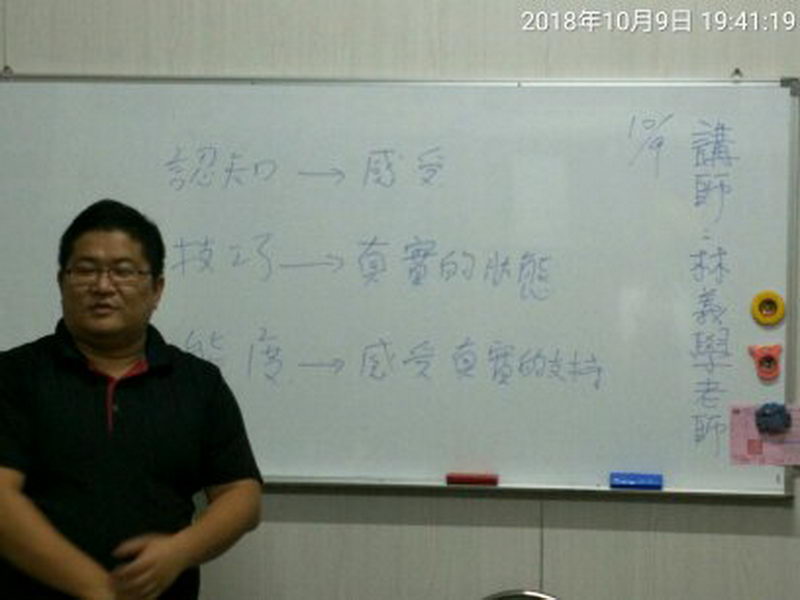 2018年10月9日 19:41:19
10/9
講師:林義學老師
認知→感受
技巧→真實的狀態
態度→感受真實的支持